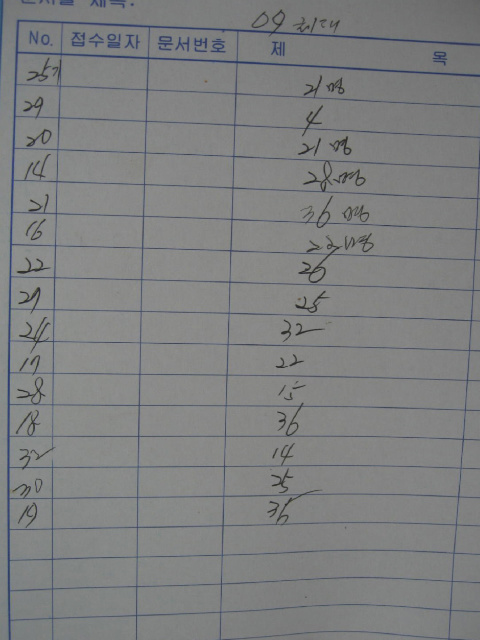 09
No. 접수일자 문서번호 제 목
25기 21명
29 4
20 21명
14 28명
21 36명
16 22명
22 26
27 25
24 32
17 22
28 15
18 36
32 14
30 25
19 35